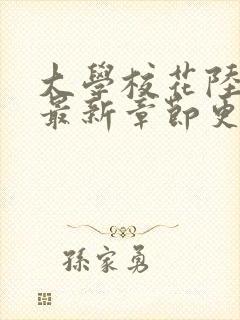 大學校花陸
最新章節更
孫家勇